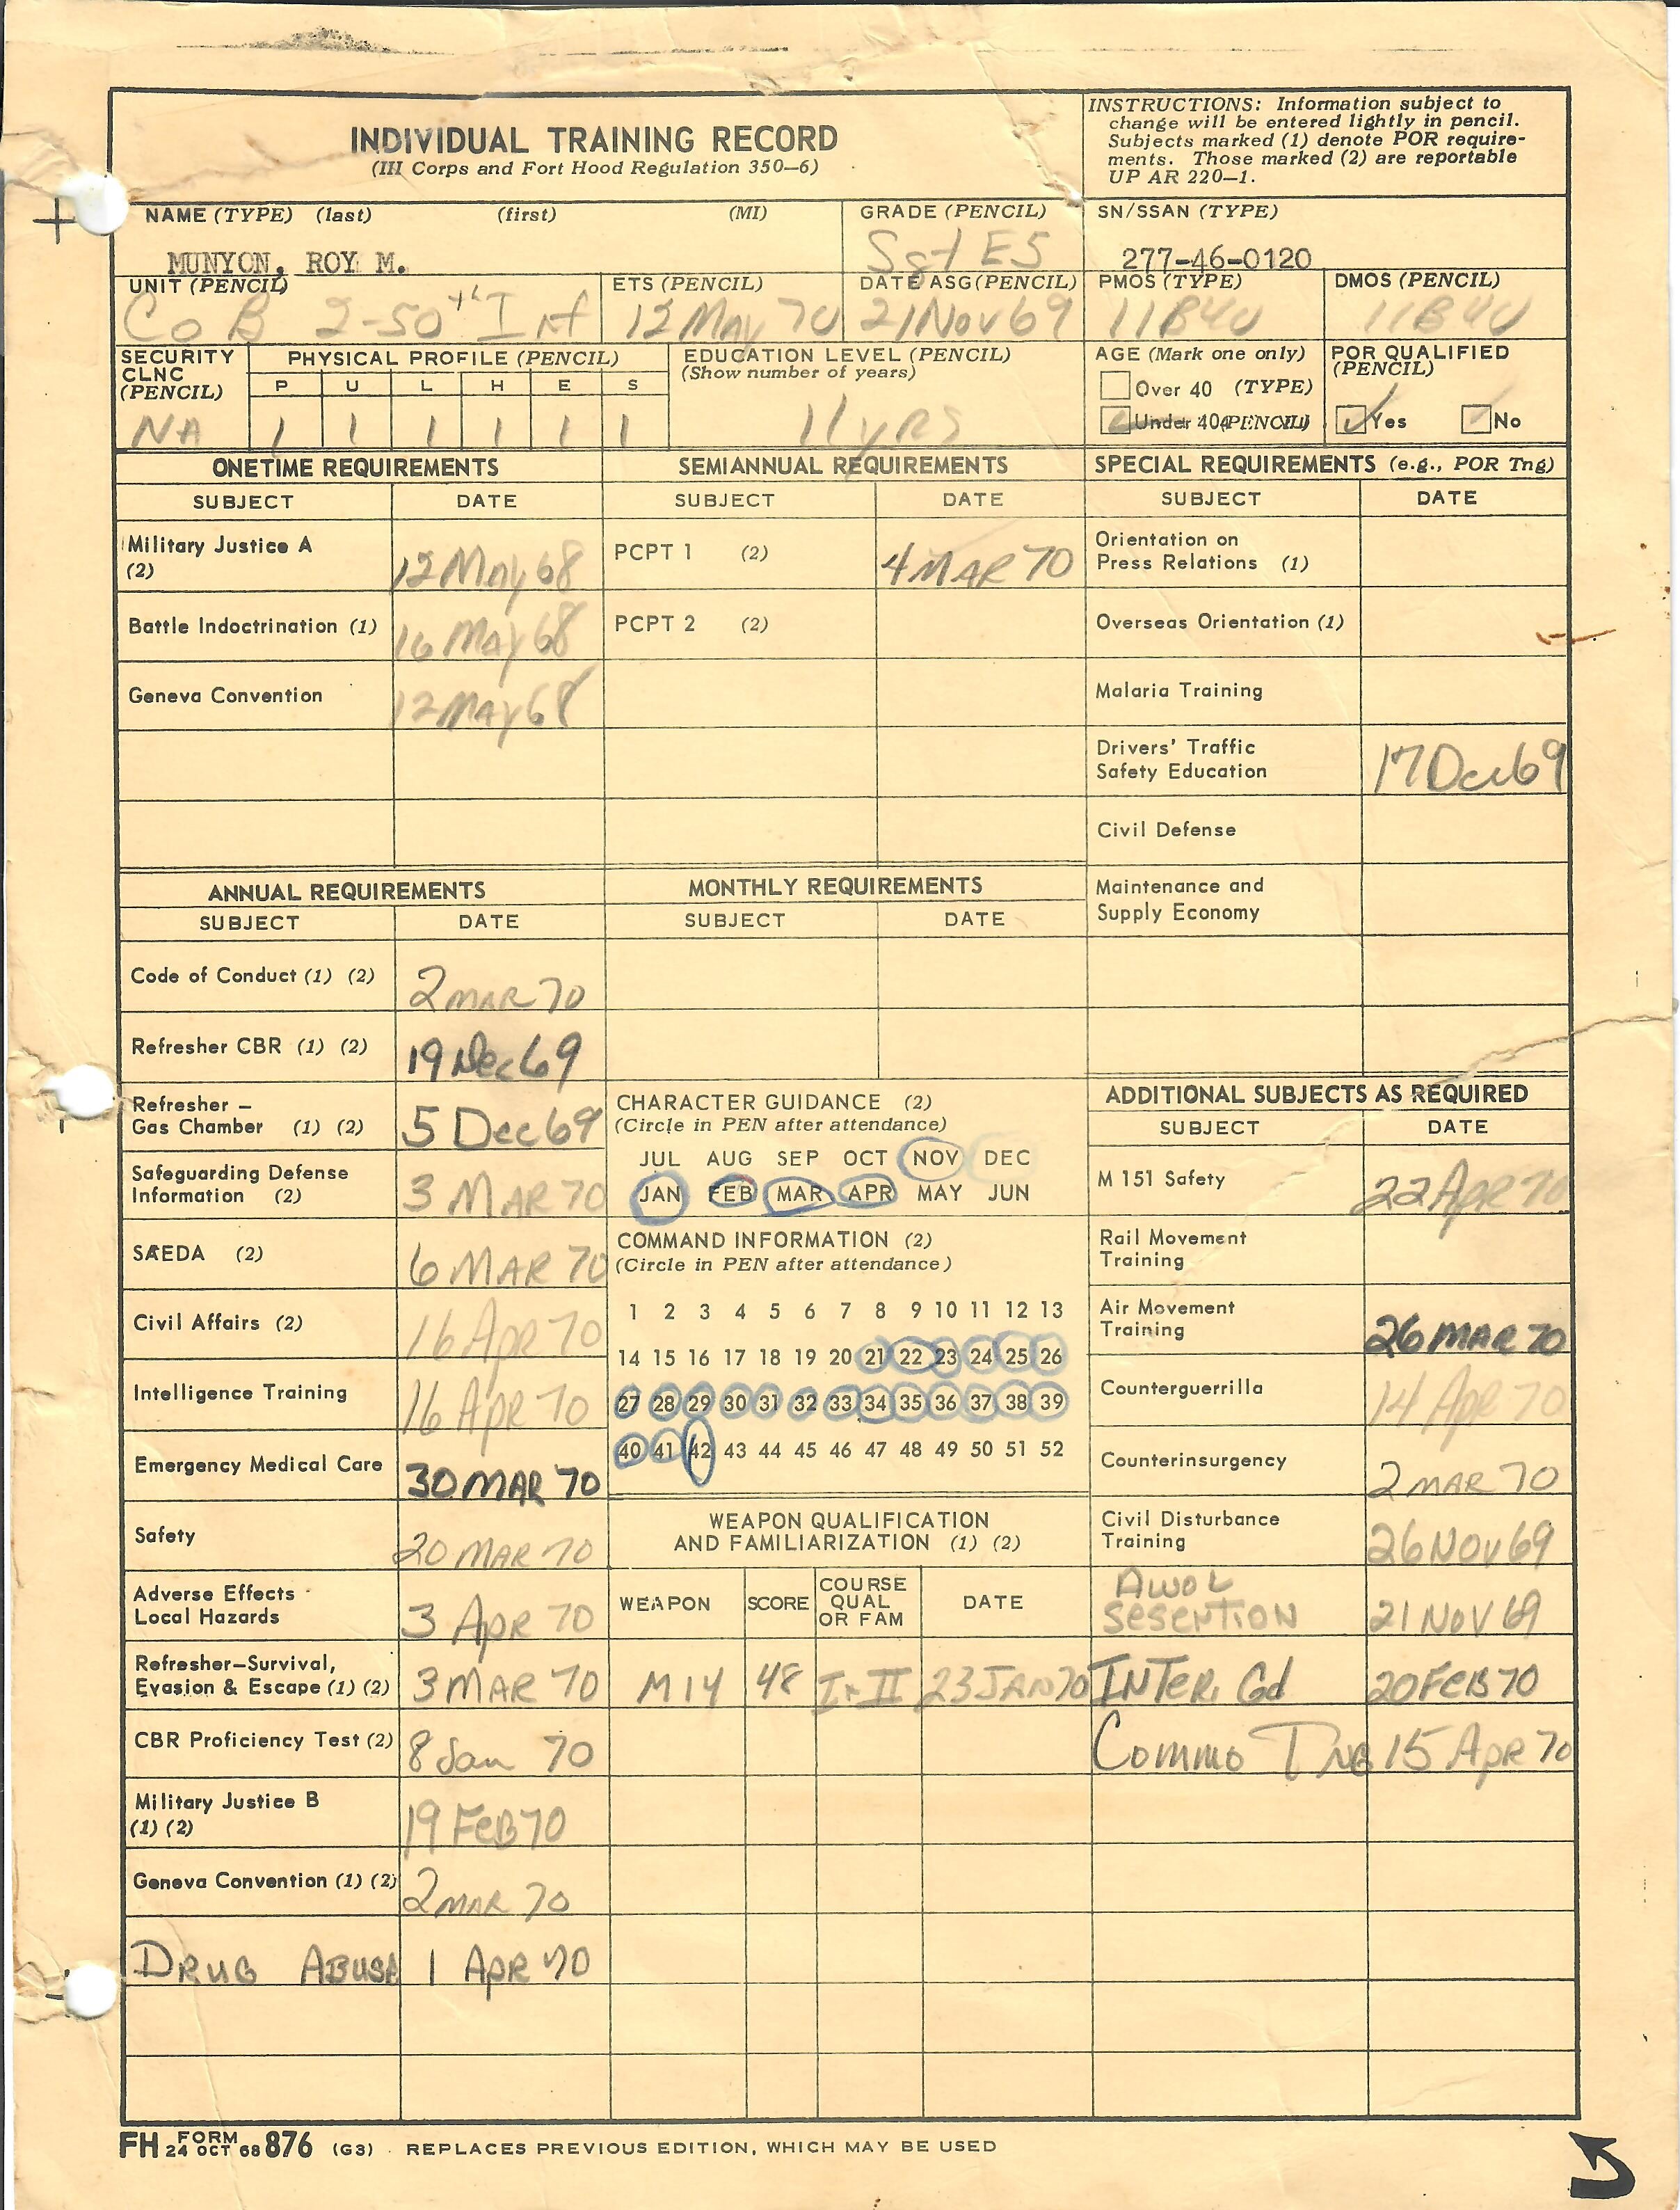 INDIVIDUAL TRAINING RECORD
(III Corps and Fort Hood Regulation 350-6)
INSTRUCTIONS: Information subject to
change will be entered lightly in pencil.
Subjects marked (1) denote POR require-
ments. Those marked (2) are reportable
UP AR 220-1.
NAME (TYPE) (last) (first) (MI)
MUNYON, ROY M.
GRADE (PENCIL)
Sgt E5
SN/SSAN (TYPE)
277-46-0120
UNIT (PENCIL)
Co B 2-50th Inf
ETS (PENCIL)
12 May 70
DATE ASG (PENCIL)
21 Nov 69
PMOS (TYPE)
11B40
DMOS (PENCIL)
11B40
SECURITY
CLNC
(PENCIL)
NA
PHYSICAL PROFILE (PENCIL)
P U L H E S
1 1 1 1 1 1
EDUCATION LEVEL (PENCIL)
(Show number of years)
11 yRS
AGE (Mark one only)
Over 40 (TYPE)
Under 40 (PENCIL)
POR QUALIFIED
(PENCIL)
Yes No
ONETIME REQUIREMENTS
SUBJECT DATE
Military Justice A
(2) 12 May 68
Battle Indoctrination (1) 16 May 68
Geneva Convention 12 May 68
SEMIANNUAL REQUIREMENTS
SUBJECT DATE
PCPT 1 (2) 4 MAR 70
PCPT 2 (2)
SPECIAL REQUIREMENTS (e.g., POR Tng)
SUBJECT DATE
Orientation on
Press Relations (1)
Overseas Orientation (1)
Malaria Training
Drivers' Traffic
Safety Education 17 Dec 69
Civil Defense
Maintenance and
Supply Economy
ANNUAL REQUIREMENTS
SUBJECT DATE
Code of Conduct (1) (2) 2 MAR 70
Refresher CBR (1) (2) 19 Dec 69
Refresher -
Gas Chamber (1) (2) 5 Dec 69
Safeguarding Defense
Information (2) 3 MAR 70
SAEDA (2) 6 MAR 70
Civil Affairs (2) 16 Apr 70
Intelligence Training 16 Apr 70
Emergency Medical Care 30 MAR 70
Safety 20 MAR 70
Adverse Effects
Local Hazards 3 Apr 70
Refresher-Survival,
Evasion & Escape (1) (2) 3 MAR 70
CBR Proficiency Test (2) 8 Jan 70
Military Justice B
(1) (2) 19 FEB 70
Geneva Convention (1) (2) 2 MAR 70
DRUG ABUSE 1 APR 70
MONTHLY REQUIREMENTS
SUBJECT DATE
CHARACTER GUIDANCE (2)
(Circle in PEN after attendance)
JUL AUG SEP OCT NOV DEC
JAN FEB MAR APR MAY JUN
COMMAND INFORMATION (2)
(Circle in PEN after attendance)
1 2 3 4 5 6 7 8 9 10 11 12 13
14 15 16 17 18 19 20 21 22 23 24 25 26
27 28 29 30 31 32 33 34 35 36 37 38 39
40 41 42 43 44 45 46 47 48 49 50 51 52
WEAPON QUALIFICATION
AND FAMILIARIZATION (1) (2)
WEAPON SCORE COURSE
QUAL
OR FAM DATE
M14 48 I-II 23 JAN 70
ADDITIONAL SUBJECTS AS REQUIRED
SUBJECT DATE
M 151 Safety 22 Apr 70
Rail Movement
Training
Air Movement
Training 26 MAR 70
Counterguerrilla 14 Apr 70
Counterinsurgency 2 MAR 70
Civil Disturbance
Training 26 NOV 69
AWOL
SESERTION 21 NOV 69
INTER. Gd 20 FEB 70
Commo TNG 15 APR 70
FH FORM 24 OCT 68 876 (G3) REPLACES PREVIOUS EDITION, WHICH MAY BE USED